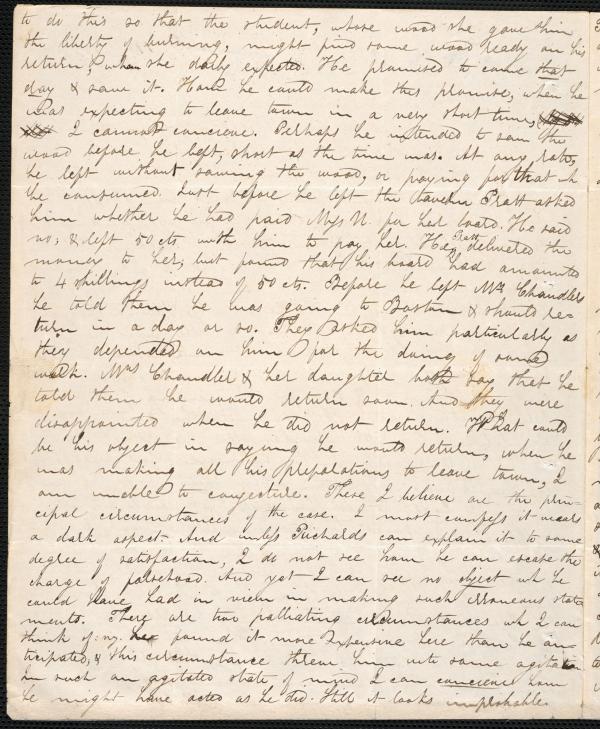 to do this so that the student, whose wood she gave him
the liberty of burning, might find some wood ready on his
return, whom she daily expected. He promised to come that
day & saw it. How he could make this promise, when he
was expecting to leave town in a very short time,
I cannot conceive. Perhaps he intended to saw the
wood before he left, short as the time was. At any rate,
he left without sawing the wood, or paying for that wh
he consumed. Just before he left the tavern Pratt asked
him whether he had paid Mrs N. for her board. He said
no; & left 50 cts. with him to pay her. He Pratt delivered the
money to her, but found that his board had amounted
to 4 shillings instead of 50 cts. Before he left Mrs Chandlers
he told them he was going to Boston & should re-
turn in a day or so. They asked him particularly as
they depended on him for the doing of some
work. Mrs Chandler & her daughter both say that he
told them he would return soon. And they were
disappointed when he did not return. What could
be his object in saying he would return, when he
was making all his preparations to leave town, I
am unable to conjecture. These I believe are the prin-
cipal circumstances of the case. I must confess it wears
a dark aspect. And unless Richards can explain it to some
degree of satisfaction, I do not see how he can escape the
charge of falsehood. And yet I can see no object wh he
could have had in view in making such erroneous state
ments. There are two palliating circumstances wh I can
think of: viz. found it more expensive here than he an-
ticipated, & this circumstance threw him into some agitation
In such an agitated state of mind I can conceive how
he might have acted as he did. Still it looks improbable.